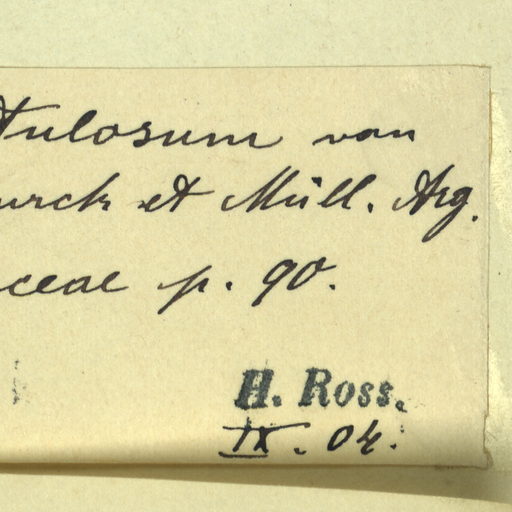 tulosum van
urck et Müll. Arg.
ceae p. 90.
H. Ross.
IX. 04.